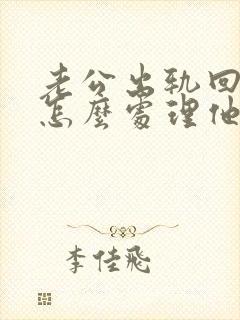 老公出轨回
怎麼處理他
李佳飛